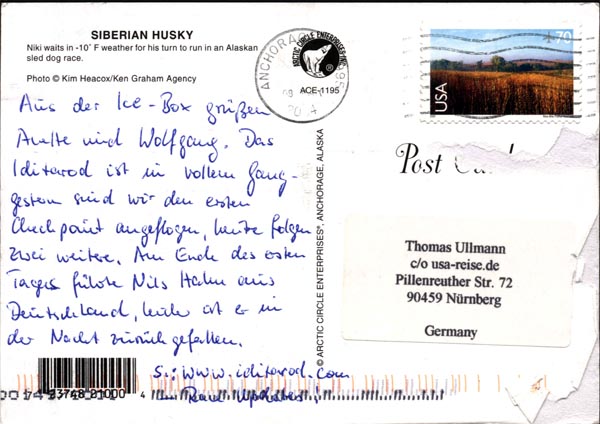 SIBERIAN HUSKY
Niki waits in -10° F weather for his turn to run in an Alaskan
sled dog race.
Photo © Kim Heacox/Ken Graham Agency
ARCTIC CIRCLE ENTERPRISES
ACE-1195
ANCHORAGE
70
USA
Aus der Ice-Box grüßen
und Wolfgang. Das
Iditarod ist in vollem Gang-
gestern sind wir den ersten
Checkpoint angeflogen, heute folgen
zwei weitere. Am Ende des ersten
Tages führte Nils Hahn aus
Deutschland, leider ist er in
der Nacht zurückgefallen.
S.: www.iditarod.com
Updates!
© ARCTIC CIRCLE ENTERPRISES®, ANCHORAGE, ALASKA
Post Card
Thomas Ullmann
c/o usa-reise.de
Pillenreuther Str. 72
90459 Nürnberg
Germany
23748 21000 4